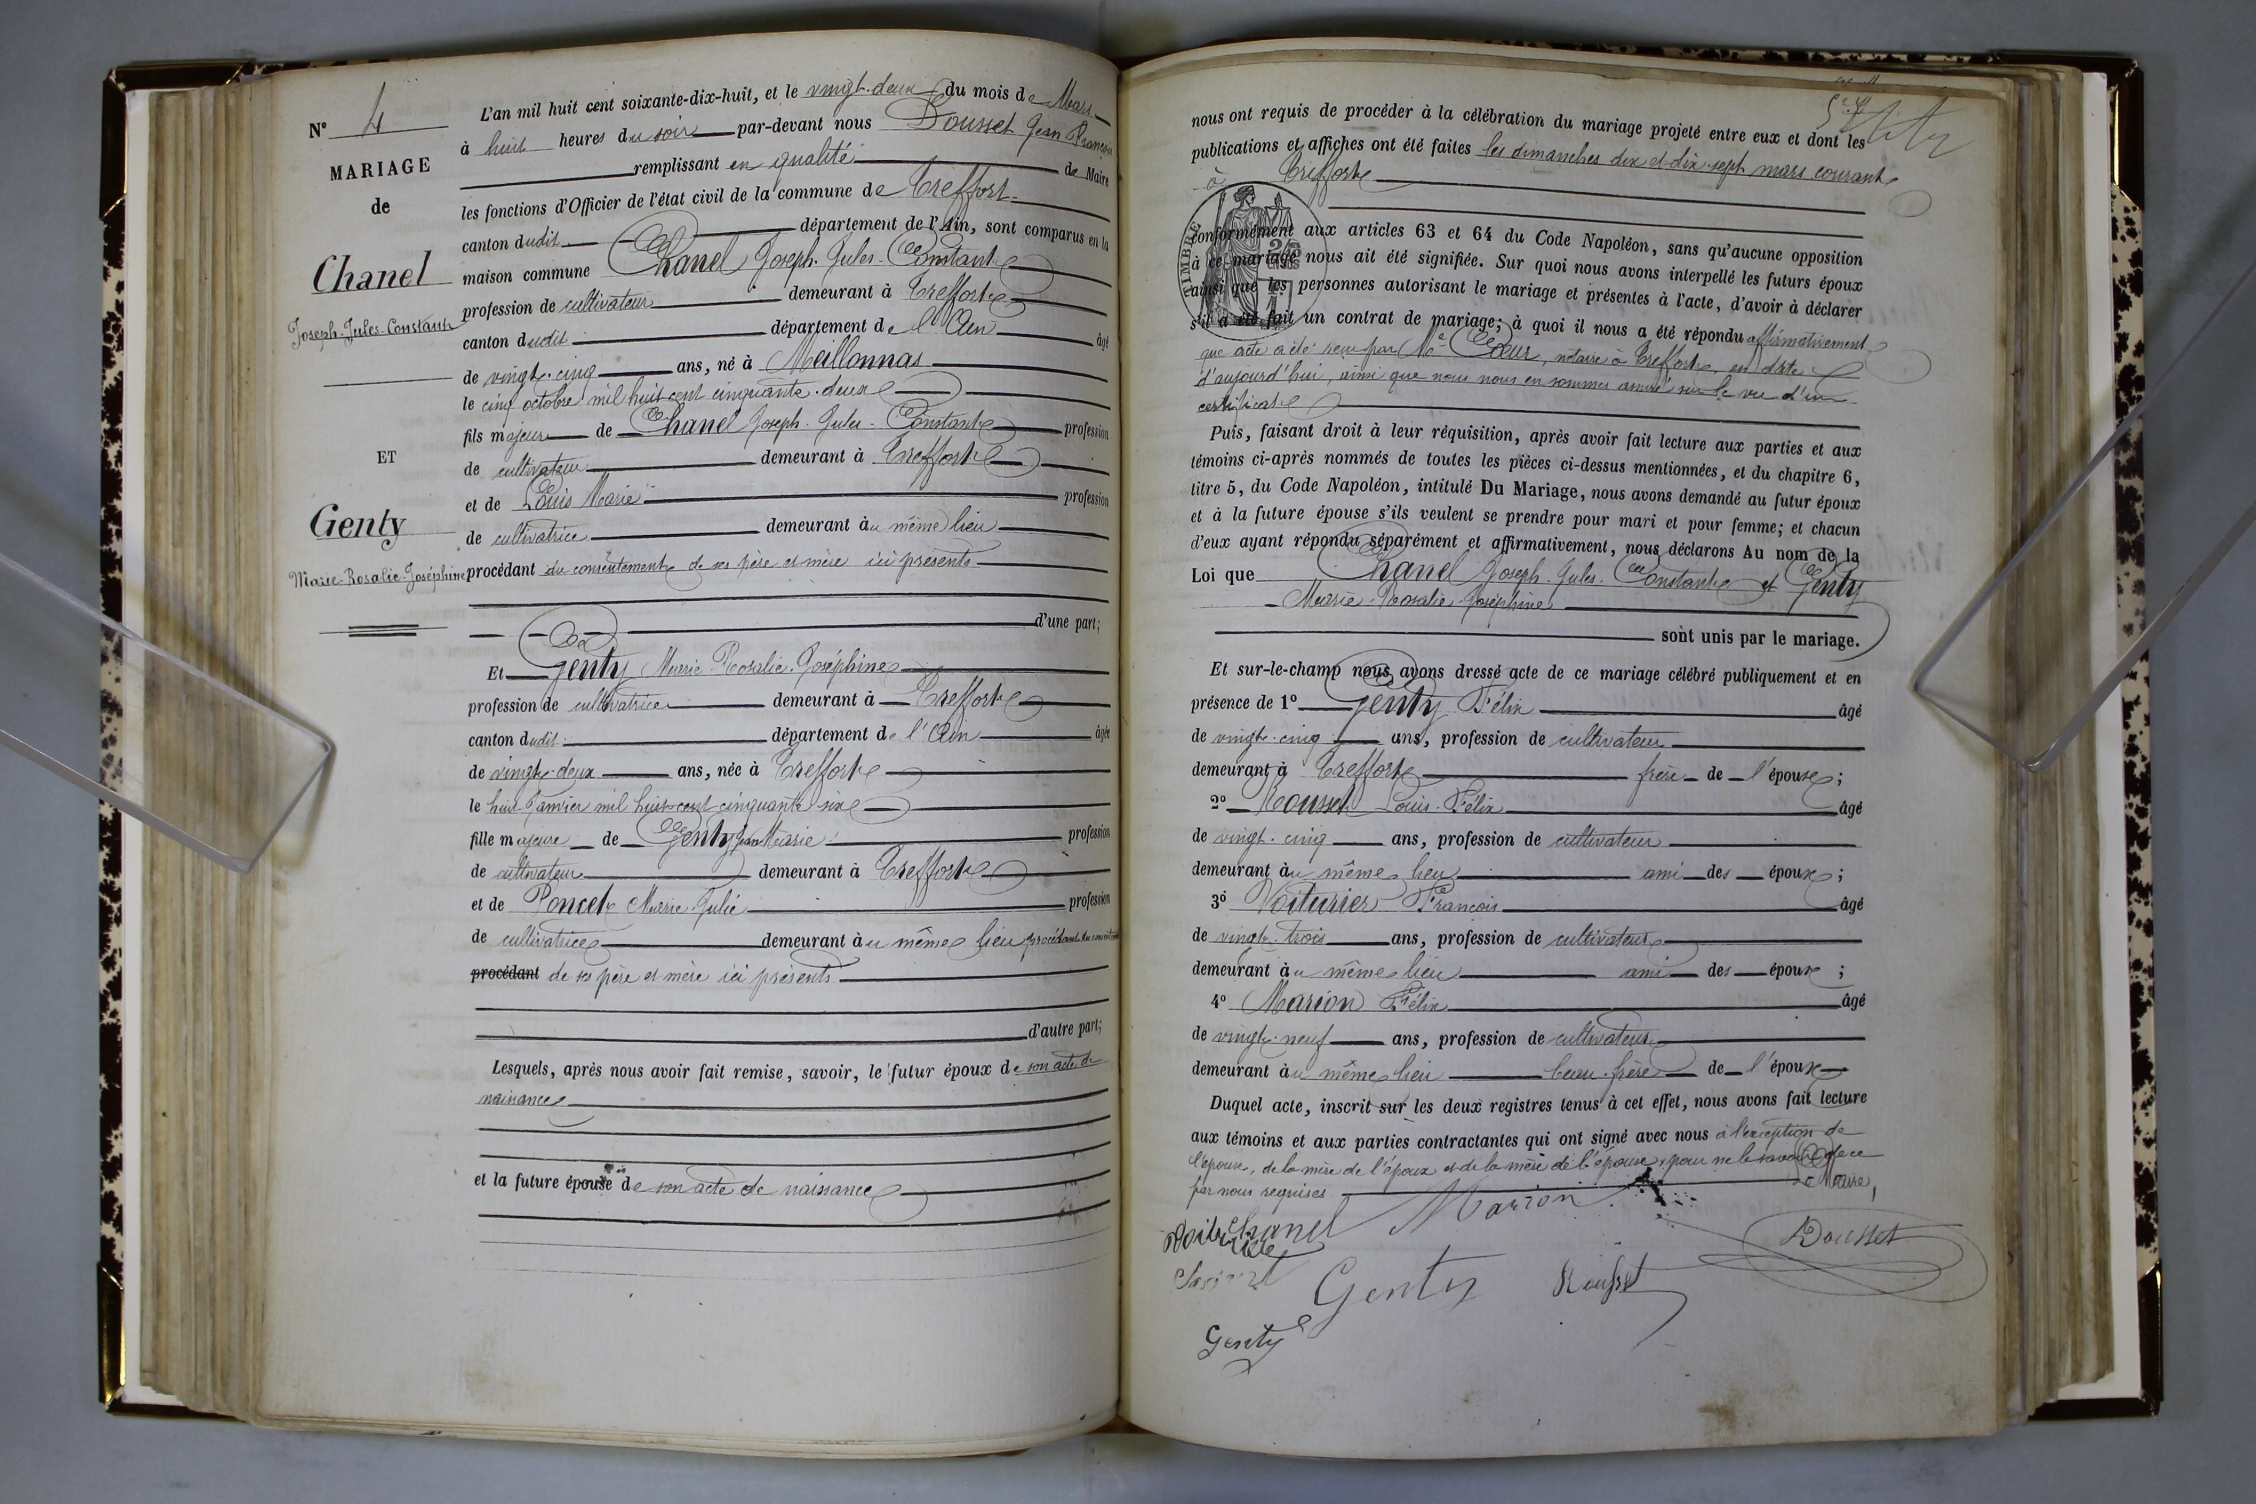 N° 4
MARIAGE
de
Chanel
Joseph-Jules-Constant
ET
Genty
Marie-Rosalie-Joséphine
L'an mil huit cent soixante-dix-huit, et le vingt-deux du mois de Mars
à huit heures du soir par-devant nous Dousset Jean François
remplissant en qualité de Maire
les fonctions d'Officier de l'état civil de la commune de Treffort
canton dudit département de l'Ain, sont comparus en la
maison commune Chanel Joseph-Jules-Constant
profession de cultivateur demeurant à Treffort
canton dudit département de l'Ain âgé
de vingt-cinq ans, né à Meillonnas
le cinq octobre mil huit cent cinquante-deux
fils majeur de Chanel Joseph-Jules-Constant profession
de cultivateur demeurant à Treffort
et de Louis Marie profession
de cultivatrice demeurant au même lieu
procédant du consentement de ses père et mère ici présents
d'une part;
Et Genty Marie-Rosalie-Joséphine
profession de cultivatrice demeurant à Treffort
canton dudit département de l'Ain âgée
de vingt-deux ans, née à Treffort
le huit Janvier mil huit cent cinquante six
fille majeure de Genty Jean Marie profession
de cultivateur demeurant à Treffort
et de Poncet Marie Julie profession
de cultivatrice demeurant au même lieu procédant du consentement
procédant de ses père et mère ici présents
d'autre part;
Lesquels, après nous avoir fait remise, savoir, le futur époux de son acte de
naissance
et la future épouse de son acte de naissance
nous ont requis de procéder à la célébration du mariage projeté entre eux et dont les
publications et affiches ont été faites les dimanches dix et dix-sept mars courant
à Treffort
TIMBRE
conformément aux articles 63 et 64 du Code Napoléon, sans qu'aucune opposition
à ce mariage nous ait été signifiée. Sur quoi nous avons interpellé les futurs époux
ainsi que les personnes autorisant le mariage et présentes à l'acte, d'avoir à déclarer
s'il a été fait un contrat de mariage; à quoi il nous a été répondu affirmativement
que acte a été reçu par Me Cœur, notaire à Treffort, en date
d'aujourd'hui, ainsi que nous nous en sommes assuré sur le vu d'un
certificat
Puis, faisant droit à leur réquisition, après avoir fait lecture aux parties et aux
témoins ci-après nommés de toutes les pièces ci-dessus mentionnées, et du chapitre 6,
titre 5, du Code Napoléon, intitulé Du Mariage, nous avons demandé au futur époux
et à la future épouse s'ils veulent se prendre pour mari et pour femme; et chacun
d'eux ayant répondu séparément et affirmativement, nous déclarons Au nom de la
Loi que Chanel Joseph-Jules-Constant et Genty
Marie-Rosalie-Joséphine
sont unis par le mariage.
Et sur-le-champ nous avons dressé acte de ce mariage célébré publiquement et en
présence de 1° Genty Félix âgé
de vingt-cinq ans, profession de cultivateur
demeurant à Treffort frère de l'épouse;
2° Rousset Louis-Félix âgé
de vingt-cinq ans, profession de cultivateur
demeurant au même lieu ami des époux;
3° Voiturier François âgé
de vingt-trois ans, profession de cultivateur
demeurant au même lieu ami des époux;
4° Marion Félix âgé
de vingt-neuf ans, profession de cultivateur
demeurant au même lieu beau-frère de l'époux
Duquel acte, inscrit sur les deux registres tenus à cet effet, nous avons fait lecture
aux témoins et aux parties contractantes qui ont signé avec nous à l'exception de
l'épouse, de la mère de l'époux et de la mère de l'épouse, pour ne le savoir de ce
par nous requises Le Maire,
Chanel Marion
Dousset
Genty Rousset
Genty